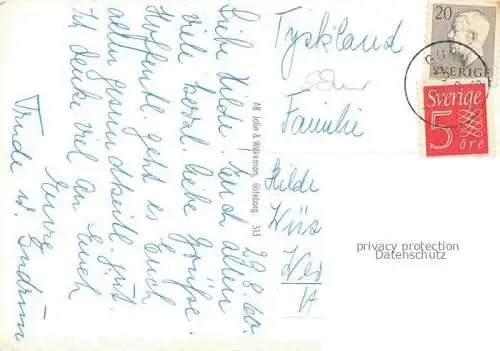 29.8.60.
Liebe Hilde! Euch allen
viele herzl. liebe Grüße.
Hoffentl. geht es Euch
allen gesundheitl. gut.
Ich denke viel an Euch
Eure
Trude u. Gudrun
AB Jolin & Wilkenson, Göteborg. 513
Tyskland
Familie
Hilde
20
SVERIGE
Sverige
5
öre
privacy protection
Datenschutz